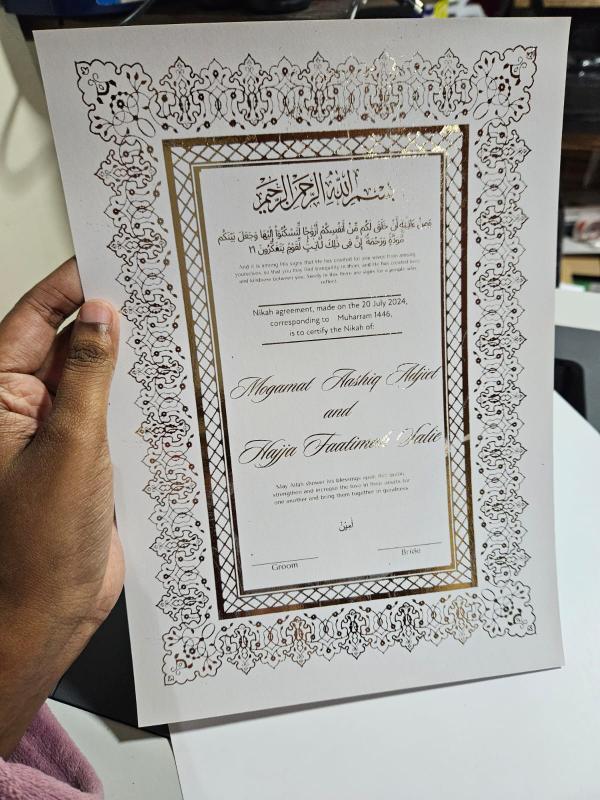 بسم الله الرحمن الرحيم
وَمِنْ ءَايَٰتِهِۦٓ أَنْ خَلَقَ لَكُم مِّنْ أَنفُسِكُمْ أَزْوَٰجًا لِّتَسْكُنُوٓا۟ إِلَيْهَا وَجَعَلَ بَيْنَكُم
مَّوَدَّةً وَرَحْمَةً إِنَّ فِى ذَٰلِكَ لَءَايَٰتٍ لِّقَوْمٍ يَتَفَكَّرُونَ ٢١
And it is among His signs that He has created for you wives from among
yourselves, so that you may find tranquility in them, and He has created love
and kindness between you. Surely in this there are signs for a people who
reflect.
Nikah agreement, made on the 20 July 2024,
corresponding to Muharram 1446,
is to certify the Nikah of:
Mogamat Aashiq Adjiet
and
Hajja Faatimah Salie
May Allah shower his blessings upon this union,
strengthen and increase the love in their hearts for
one another and bring them together in goodness.
آمِيْنُ
Groom
Bride